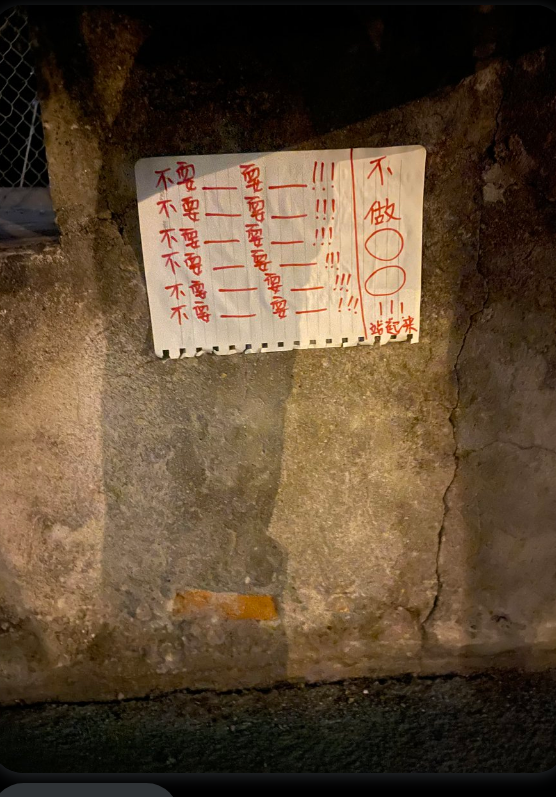 不要＿要＿!!!
不要＿要＿!!!
不要＿要＿!!!
不要＿要＿!!!
不要＿要＿!!!
不要＿要＿!!!
不
做
○
○
!!!
站起來